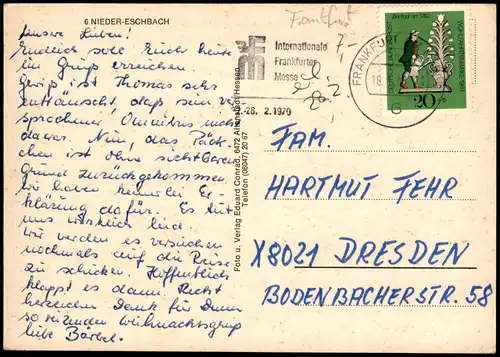 6 NIEDER-ESCHBACH
Unsere Lieben!
Endlich soll Euch heute
ein Gruß erreichen.
Gewiß ist Thomas sehr
enttäuscht, daß sein ver
sprochener Omnibus nicht
da war. Nun, das Päck-
chen ist ohne sichtbaren
Grund zurückgekommen.
Wir haben keinerlei Er-
klärung dafür. Es tut
uns wirklich leid.
Wir werden es versuchen
nochmals auf die Reise
zu schicken. Hoffentlich
klappt es dann. Recht
herzlichen Dank für Deinen
so reizenden Weihnachtsgruß
liebe Bärbel.
Foto u. Verlag Eduard Conrad, 6472 Altenstadt/Hessen
Telefon (06047) 20 67
Frankfurt
Internationale
Frankfurter
Messe
-26. 2. 1970
FRANKFURT
6
Zinnfigur um 1780
WOHLFAHRTSMARKE 1969
DEUTSCHE BUNDESPOST
20
FAM.
HARTMUT FEHR
X8021 DRESDEN
BODENBACHERSTR. 58